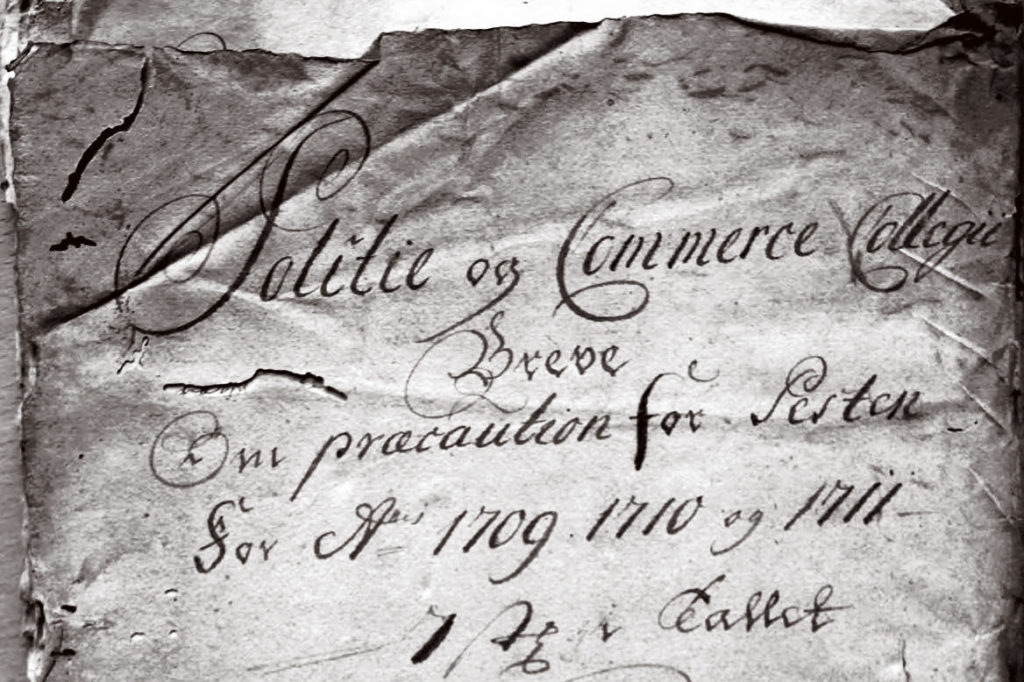 Politie og Commerce Collegie
Breve
Om præcaution for Pesten
For A⁰ⁱˢ 1709. 1710 og 1711
7 i Tallet